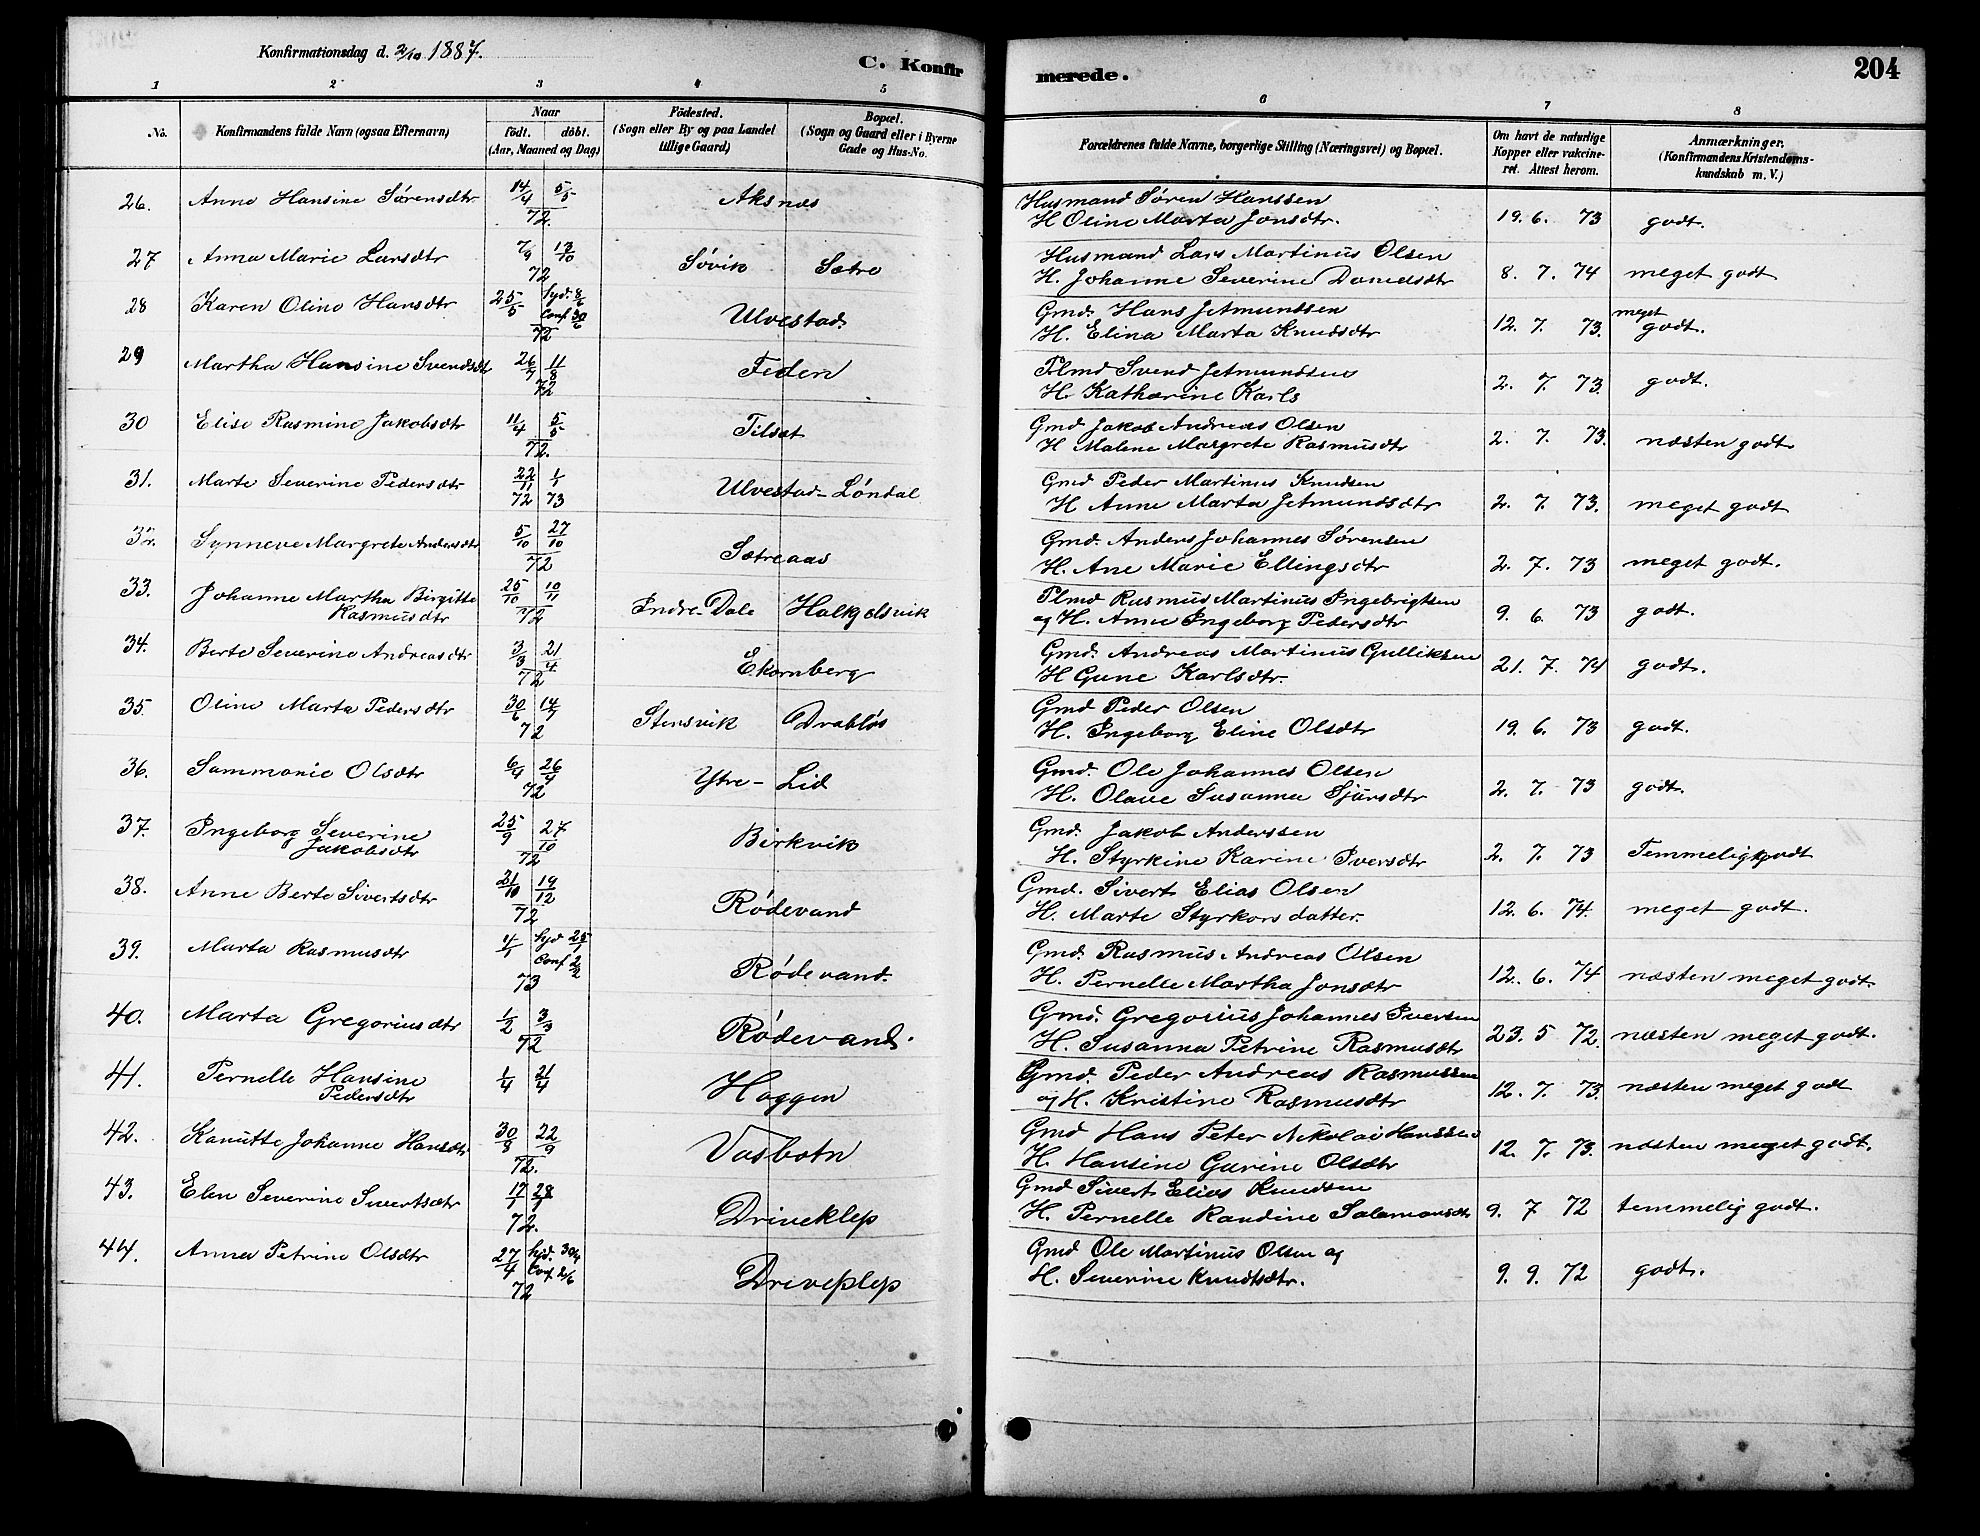 Konfirmationsdag d. 2/10 1887.
C. Konfirmerede.
204
1 2 3 4 5 6 7 8
No.
Konfirmandens fulde Navn (ogsaa Efternavn)
Naar
födt. döbt.
(Aar, Maaned og Dag)
Födested.
(Sogn eller By og paa Landet
tillige Gaard)
Bopæl.
(Sogn og Gaard eller i Byerne
Gade og Hus-No.
Forældrenes fulde Navne, borgerlige Stilling (Næringsvei) og Bopæl.
Om havt de naturlige
Kopper eller vakcine-
ret. Attest herom.
Anmærkninger.
(Konfirmandens Kristendoms-
kundskab m. V.)
26. Anne Hansine Sørensdtr 14/4 5/5 72. Aksnæs
Husmand Søren Hanssen
H Oline Marta Jonsdtr. 19. 6. 73 godt.
27 Anna Marie Larsdtr 7/9 13/10 72 Søvik Sætre
Husmand Lars Martinus Olsen
H. Johanne Severine Danielsdtr 8. 7. 74 meget godt
28 Karen Oline Hansdtr 25/5 hjd. 8/6 Conf 30/6 72 Ulvestad
Gmd. Hans Jetmundsen
H. Elina Marta Knudsdtr 12. 7. 73. meget godt.
29 Martha Hansine Svendsdtr 26/7 11/8 72 Feden
Plmd Svend Jetmundsen
H. Katharine Karls 2. 7. 73. godt.
30 Elise Rasmine Jakobsdtr 11/4 5/5 72. Tilset
Gmd Jakob Andreas Olsen
H Malene Margrete Rasmusdtr 2. 7. 73. næsten godt
31. Marte Severine Pedersdtr 22/11 72 1/1 73 Ulvestad-Løndal
Gmd Peder Martinus Knudsen
H Anne Marta Jetmundsdtr 2. 7. 73. meget godt
32. Synneve Margrete Andersdtr 5/10 27/10 72 Sætreaas
Gmd. Anders Johannes Sørensen
H. Ane Marie Ellingsdtr 2. 7. 73 meget godt.
33. Johanne Martha Birgitte
Rasmusdtr 25/10 10/11 72 Indre-Dale Halkjelsvik
Plmd Rasmus Martinus Ingebrigtsen
og H. Anne Ingeborg Pedersdtr 9. 6. 73 godt.
34. Berte Severine Andreasdtr 3/3 21/4 72 Ekornberg
Gmd. Andreas Martinus Gulliksen
H Gune Karlsdtr. 21. 7. 74 godt.
35. Oline Marta Pedersdtr 30/6 14/7 72 Stensvik Drabløs
Gmd Peder Olsen
H. Ingeborg Eline Olsdtr 19. 6. 73 godt.
36. Sammonie Olsdtr 6/4 26/4 72 Ytre-Lid
Gmd. Ole Johannes Olsen
H. Olave Susanna Sjursdtr 2. 7. 73 godt.
37. Ingeborg Severine
Jakobsdtr 25/9 27/10 72 Birkvik
Gmd. Jakob Anderssen
H. Styrkine Karine Iversdtr 2. 7. 73 Temmelig godt
38. Anne Berte Sivertsdtr 21/10 19/12 72 Rødevand
Gmd. Sivert Elias Olsen
H. Marte Styrkors datter. 12. 6. 74. meget godt.
39. Marta Rasmusdtr hjd 25/1 Conf 2/2 73 Rødevand.
Gmd. Rasmus Andreas Olsen
H. Pernelle Martha Jonsdtr 12. 6. 74 næsten meget godt.
40. Marta Gregoriusdtr 1/2 3/3 72 Rødevand.
Gmd. Gregorius Johannes Iversen
H. Susanna Petrine Rasmusdtr 23. 5 72. næsten meget godt.
41. Pernelle Hansine
Pedersdtr 1/4 21/4 Haggen
Gmd. Peder Andreas Rasmussen
og H. Kristine Rasmusdtr 12. 7. 73. næsten meget godt
42. Kanutte Johanne Hansdtr 30/8 22/9 72. Vasbotn
Gmd Hans Peter Nikolai Hanssen
H. Hansine Gurine Olsdtr 12. 7. 73. næsten meget godt.
43. Elen Severine Sivertsdtr 17/1 28/1 72. Driveklep
Gmd Sivert Elias Knudsen
H. Pernelle Randine Salamonsdtr 9. 7 72 temmelig godt.
44. Anna Petrine Olsdtr 27/4 hjd. 30/4 Conf 2/6 72 Driveplep
Gmd Ole Martinus Olsen og
H. Severine Knudtsdtr. 9. 9. 72 godt.